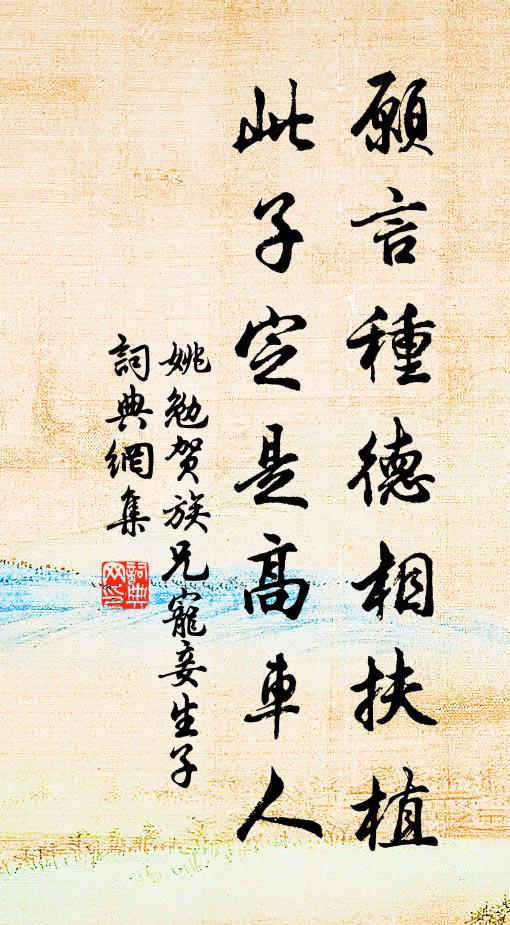 願言種德相扶植
此子定是高車人
姚勉贺族兄寵妾生子
詞典網集
詞典網印